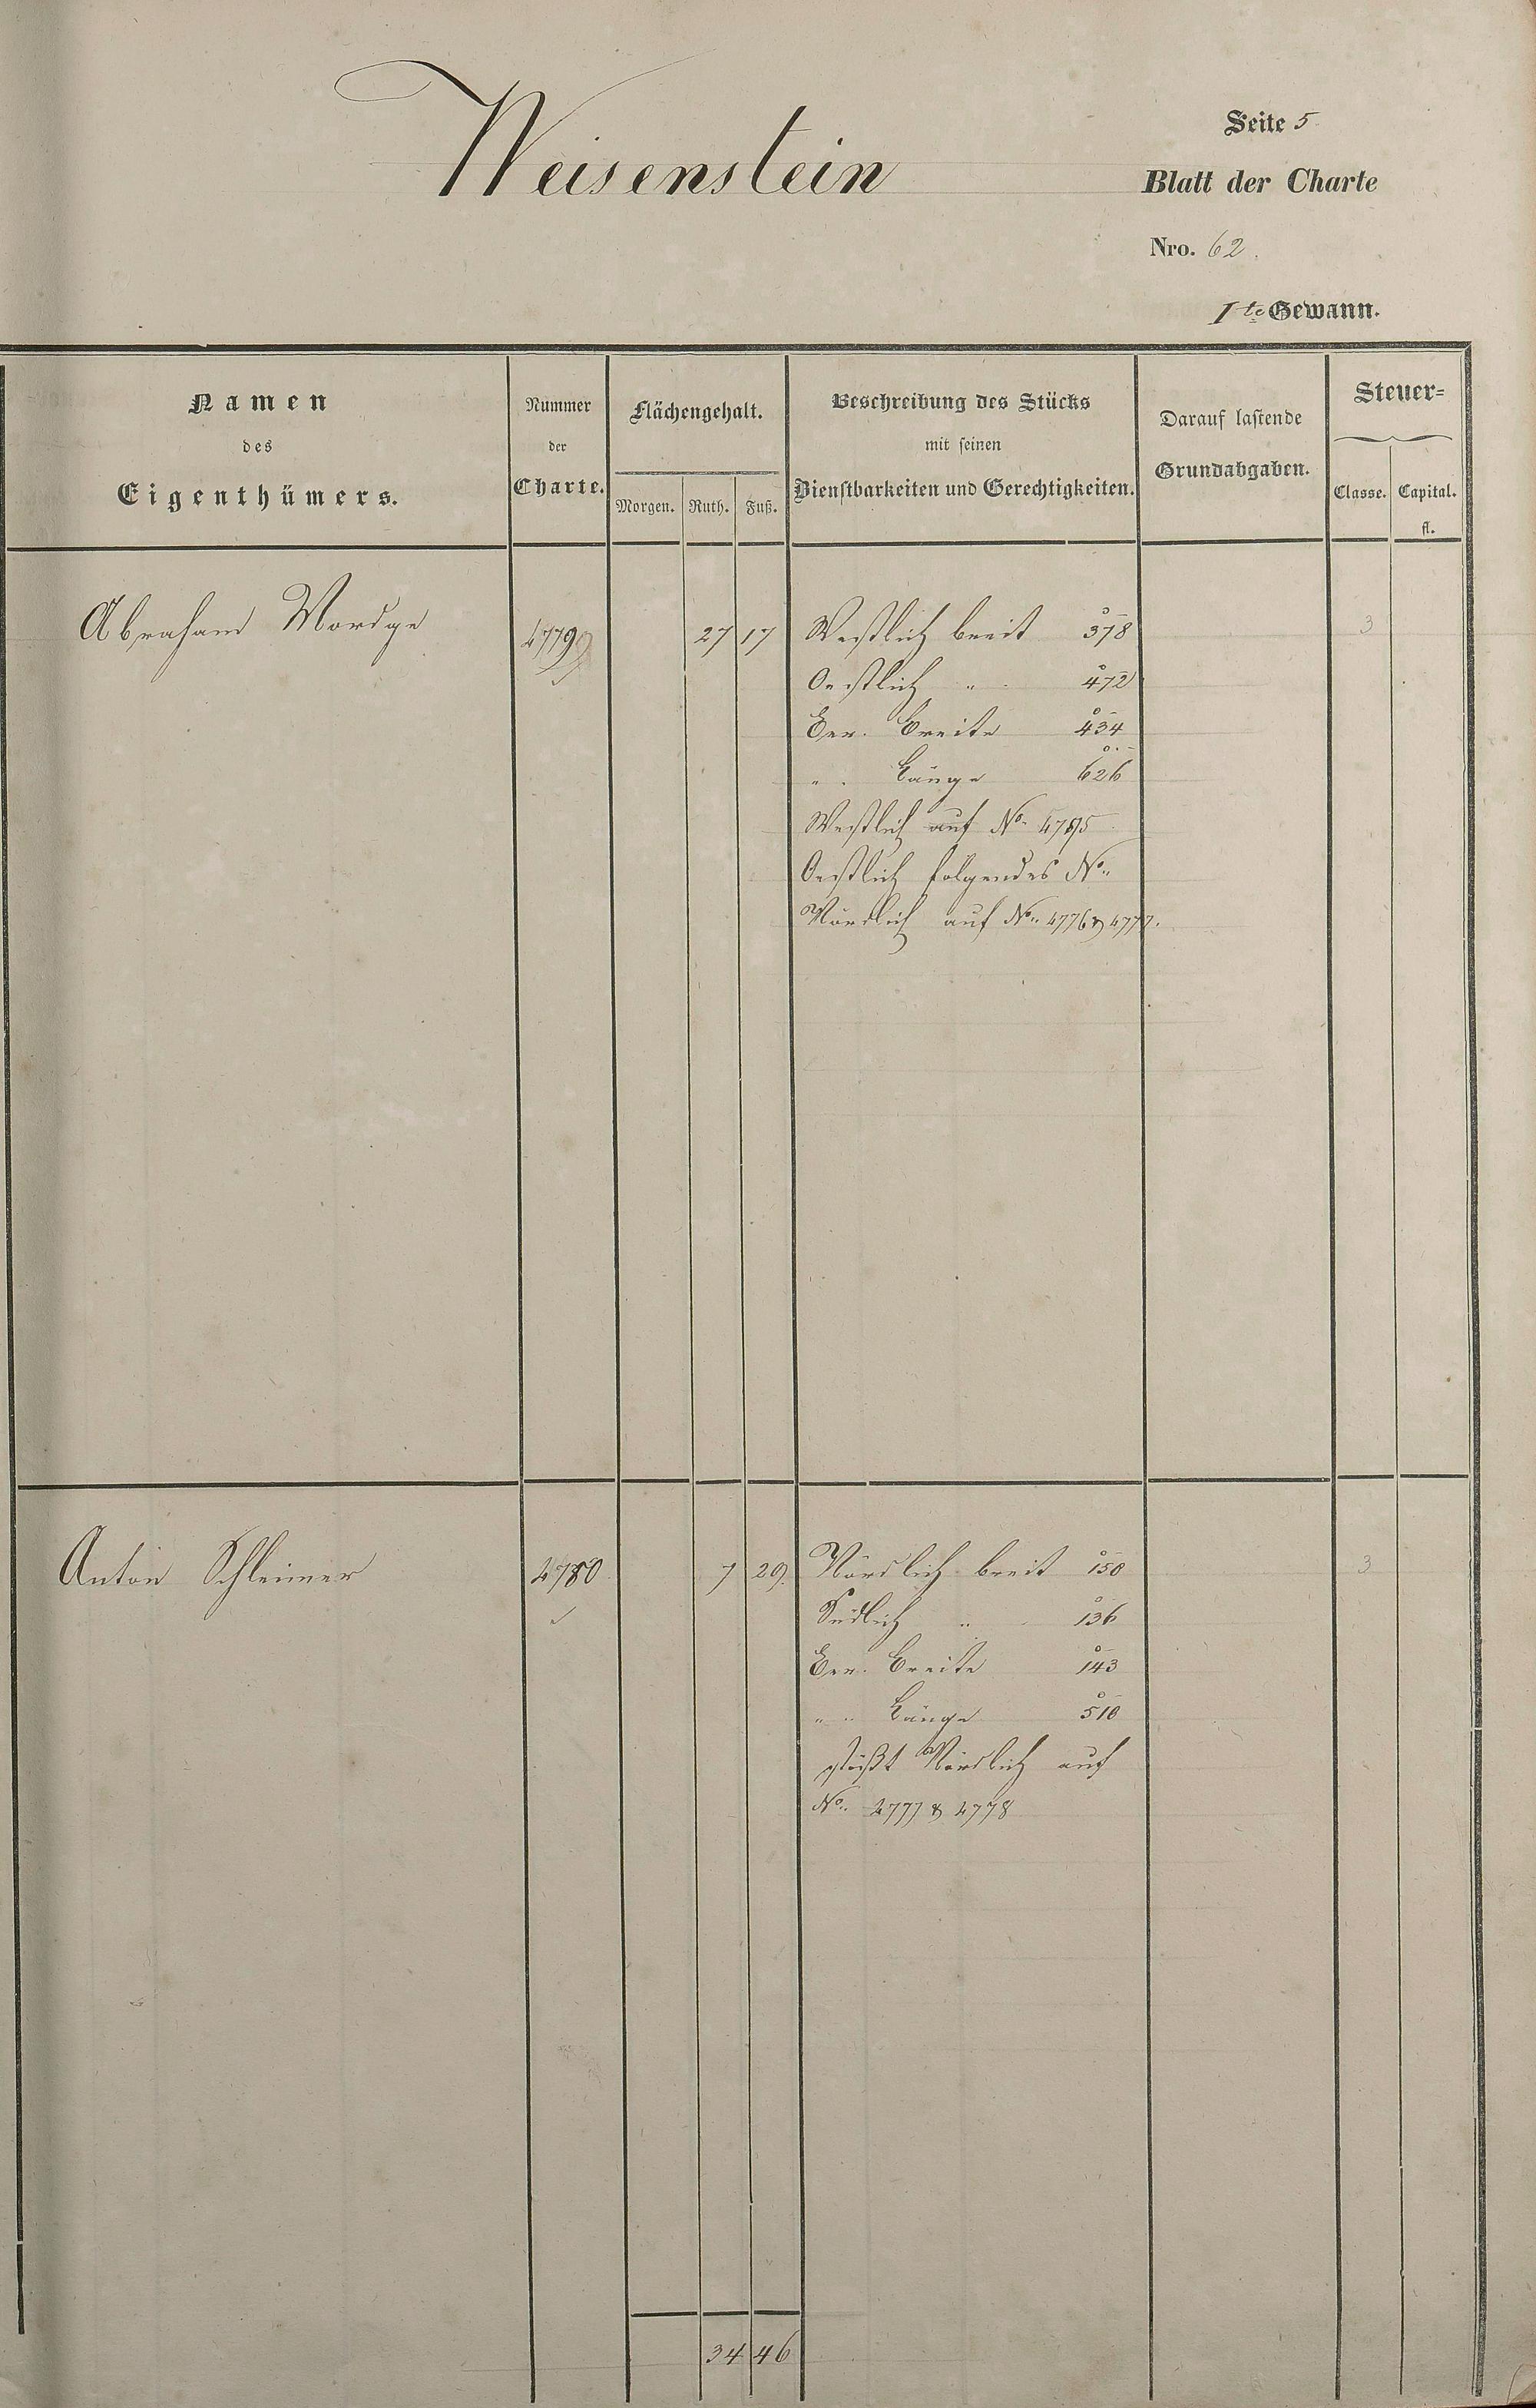 Weisenstein
Seite 5
Blatt der Charte
Nro. 62.
1te Gewann.
Namen
des
Eigenthümers.
Nummer
der
Charte.
Flächengehalt.
Morgen. Ruth. Fuß.
Beschreibung des Stücks
mit seinen
Dienstbarkeiten und Gerechtigkeiten.
Darauf lastende
Grundabgaben.
Steuer=
Classe. Capital.
fl.
Abraham Mordge 4779 27 17 Westlich breit 378 3
Oestlich „ 472
Ber. Breite 434
„ Länge 626
Westlich auf No. 4785
Oestlich folgendes No.
Nördlich auf No. 4776 & 4777.
Anton Schleimer 4780 7 29. Nördlich breit 150 3
Südlich „ 136
Ber. Breite 143
„ Länge 510
stößt Nördlich auf
No. 4777 & 4778
34 46